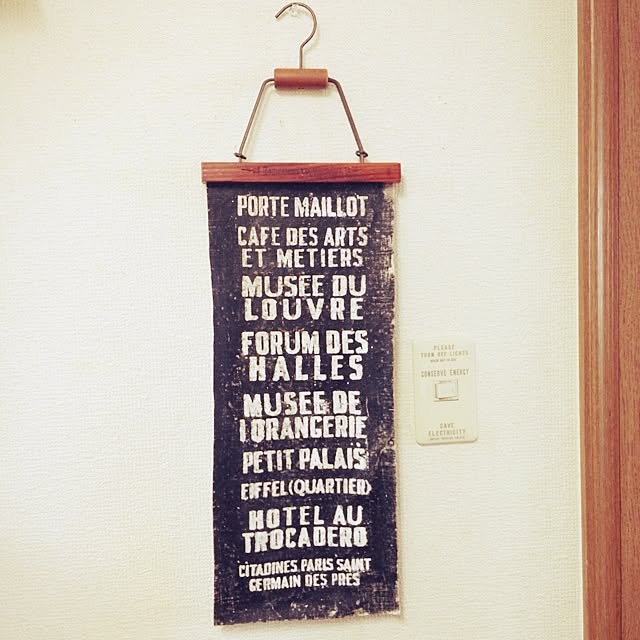 PORTE MAILLOT
CAFE DES ARTS
ET METIERS
MUSEE DU
LOUVRE
FORUM DES
HALLES
MUSEE DE
l'ORANGERIE
PETIT PALAIS
EIFFEL(QUARTIER)
HOTEL AU
TROCADERO
CITADINES PARIS SAINT
GERMAIN DES PRES
PLEASE
TURN OFF LIGHTS
WHEN NOT IN USE
CONSERVE ENERGY
SAVE
ELECTRICITY